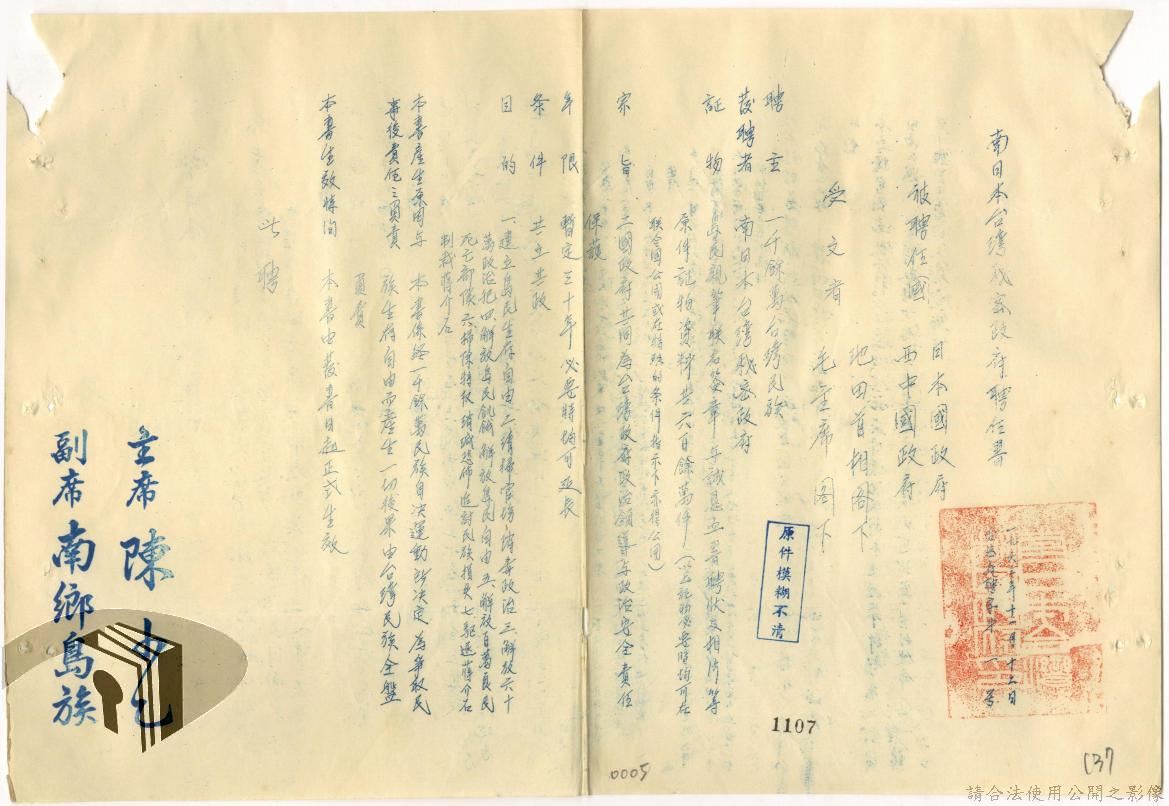 南日本台灣秘密政府聘任書
一九六一年十一月十二日
被聘任國 日本國政府
西中國政府
受文者 池田首相閣下
毛主席 閣下
聘主 一千餘萬台灣民族
發聘者 南日本台灣秘密政府
証物 島民親筆聯名簽章年誠意並署聘狀及相片等
原件証物資料共六百餘萬件(以上証物必要時均可在
聯合國公開或在特殊的条件指示下示得公開)
宗旨 二國政府共同為台灣政府政治領導与政治安全責任
保護
年限 暫定三十年必要時均可延長
条件 共立共政
目的 一建立島民生存自由二清掃官場消毒政治三解放六十
萬政治犯四解放島民飢餓解放島民自由五解放百萬良民
死亡部隊六掃除特役消滅恐怖追討民族損失七驅逐蔣介石
制裁蔣介石
本書產生原因与 本書係経一千餘萬民族自决運動所决定為爭取民
事後責任之負責 族生存自由而產生一切後果由台灣民族全盤
負責
本書生效時間 本書由發書日起正式生效
此聘
主席 陳
副席 南鄉島族
原件模糊不清
1107
0005
C37
請合法使用公開之影像